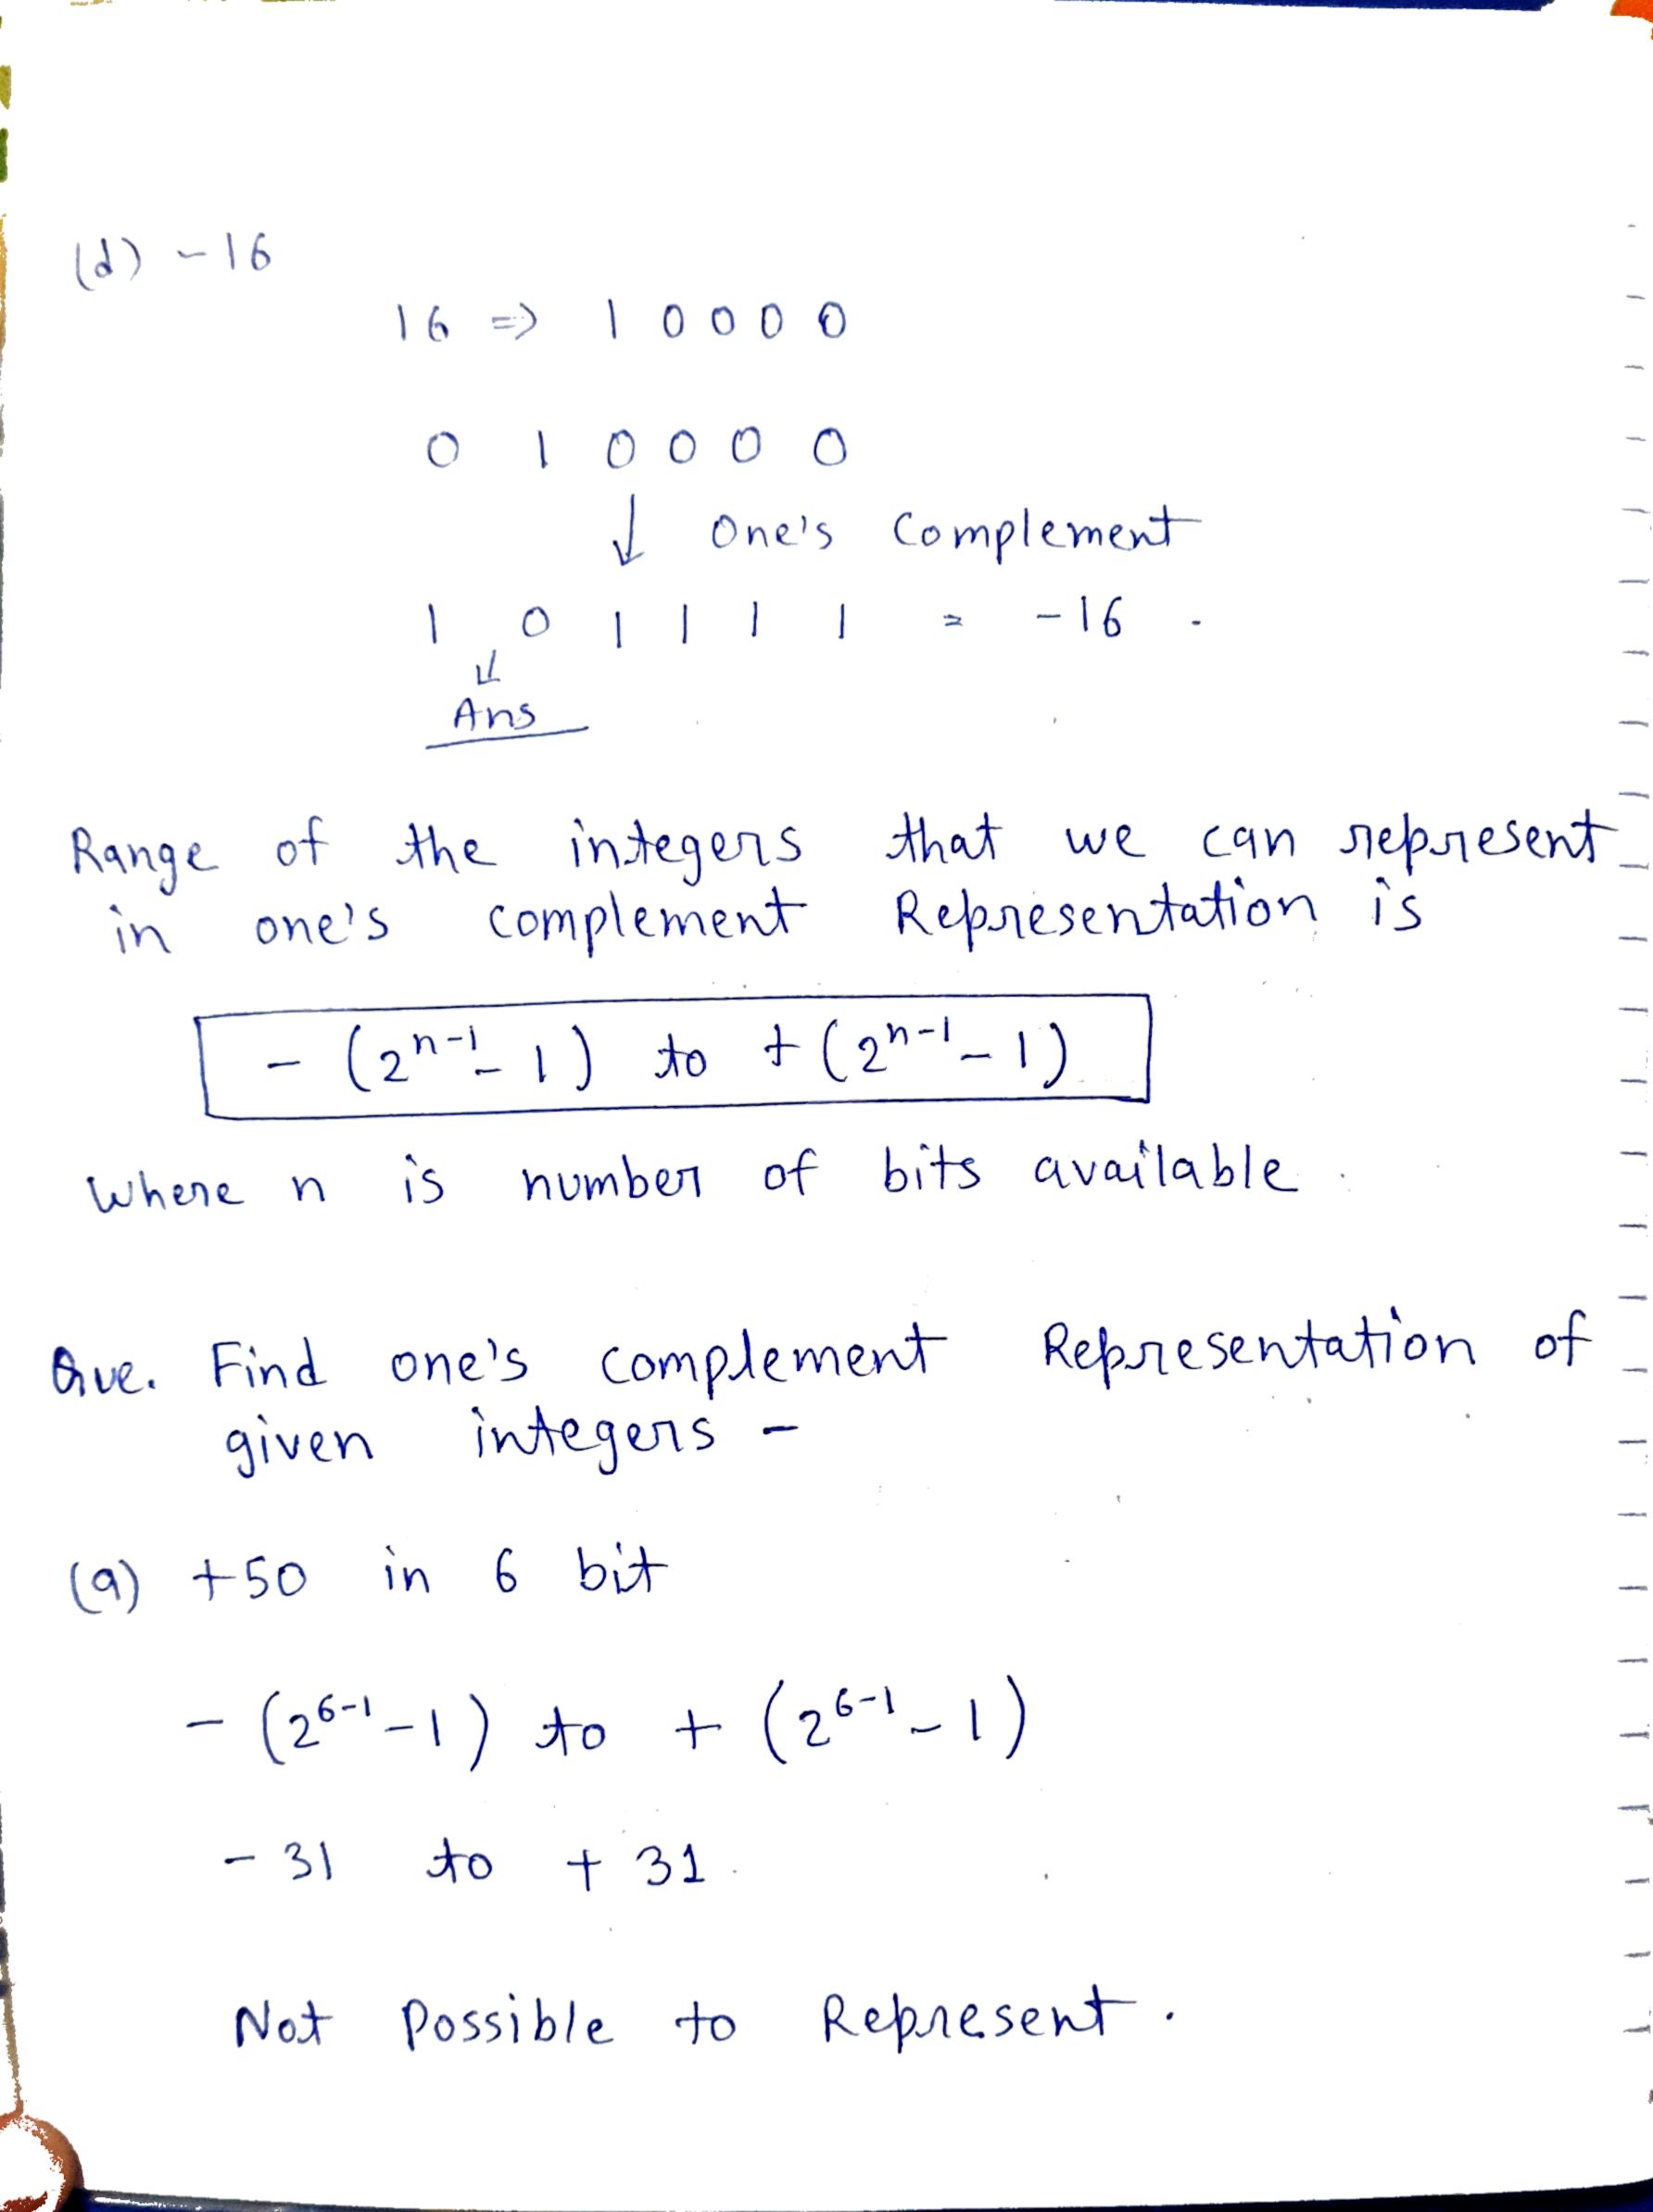 (d) -16
16 => 1 0 0 0 0
0 1 0 0 0 0
↓ One's Complement
1 0 1 1 1 1 = -16 .
↓
Ans
Range of the integers that we can represent
in one's complement Representation is
- (2ⁿ⁻¹ - 1) to + (2ⁿ⁻¹ - 1)
Where n is number of bits available.
Que. Find one's complement Representation of
given integers -
(a) +50 in 6 bit
- (2⁶⁻¹ - 1) to + (2⁶⁻¹ - 1)
- 31 to + 31.
Not Possible to Represent.